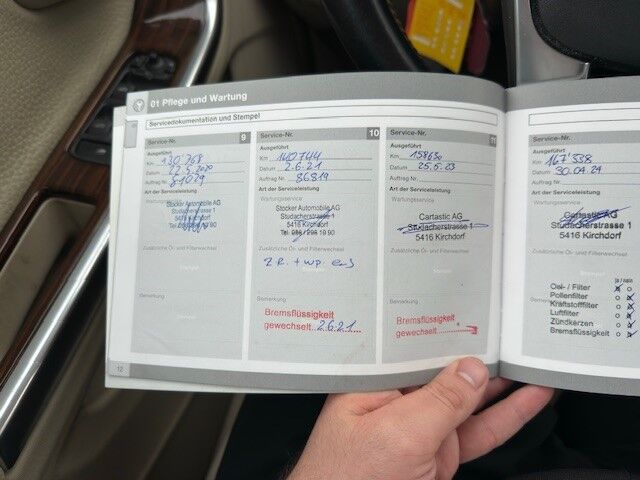 01 Pflege und Wartung
Servicedokumentation und Stempel
Service-Nr. 9
Ausgeführt
Km 130 768
Datum
Auftrag Nr.
Art der Serviceleistung
Wartungsservice
Stocker Automobile AG
Studacherstrasse 1
5416 Kirchdorf
Zusätzliche Öl- und Filterwechsel
Stempel
Bemerkung
12
Service-Nr. 10
Ausgeführt
Km 140744
Datum 2.6.21
Auftrag Nr. 86819
Art der Serviceleistung
Wartungsservice
Stocker Automobile AG
Studacherstrasse 1
5416 Kirchdorf
Tel. 056 / 296 19 90
Zusätzliche Öl- und Filterwechsel
Z R. + wp. ers
Bemerkung
Bremsflüssigkeit
gewechselt... 2.6.21
Service-Nr.
Ausgeführt
Km 158630
Datum 25.5.23
Auftrag Nr.
Art der Serviceleistung
Wartungsservice
Cartastic AG
Studacherstrasse 1
5416 Kirchdorf
Zusätzliche Öl- und Filterwechsel
Stempel
Bemerkung
Bremsflüssigkeit
gewechselt
Service-Nr.
Ausgeführt
Km 167'558
Datum 30.04.24
Auftrag Nr.
Art der Serviceleistung
Wartungsservice
Cartastic AG
Studacherstrasse 1
5416 Kirchdorf
Zusätzliche Öl- und Filterwechsel
ja / nein
Oel- / Filter
Pollenfilter
Kraftstofffilter
Luftfilter
Zündkerzen
Bremsflüssigkeit